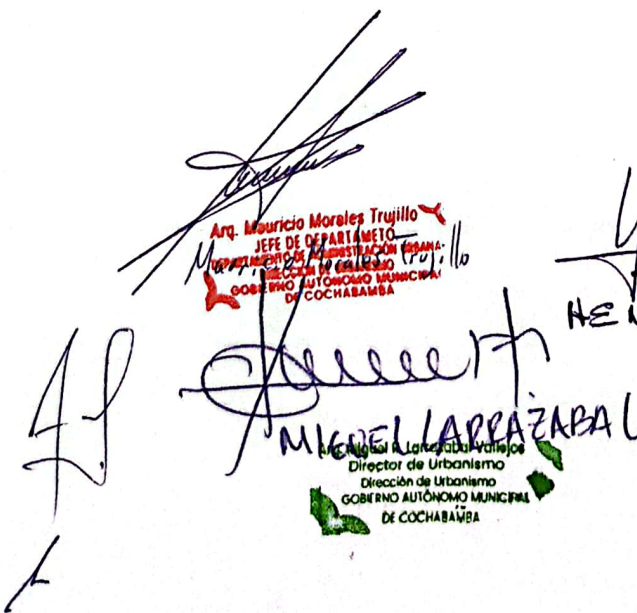 Arq. Mauricio Morales Trujillo
JEFE DE DEPARTAMETO
DEPARTAMENTO DE ADMINISTRACIÓN URBANA
Mauricio Morales Trujillo
DIRECCIÓN DE URBANISMO
GOBIERNO AUTÓNOMO MUNICIPAL
DE COCHABAMBA
HE
MIGUEL LARRAZABAL
Arq. Miguel R. Larrazabal Vallejos
Director de Urbanismo
Dirección de Urbanismo
GOBIERNO AUTÓNOMO MUNICIPAL
DE COCHABAMBA